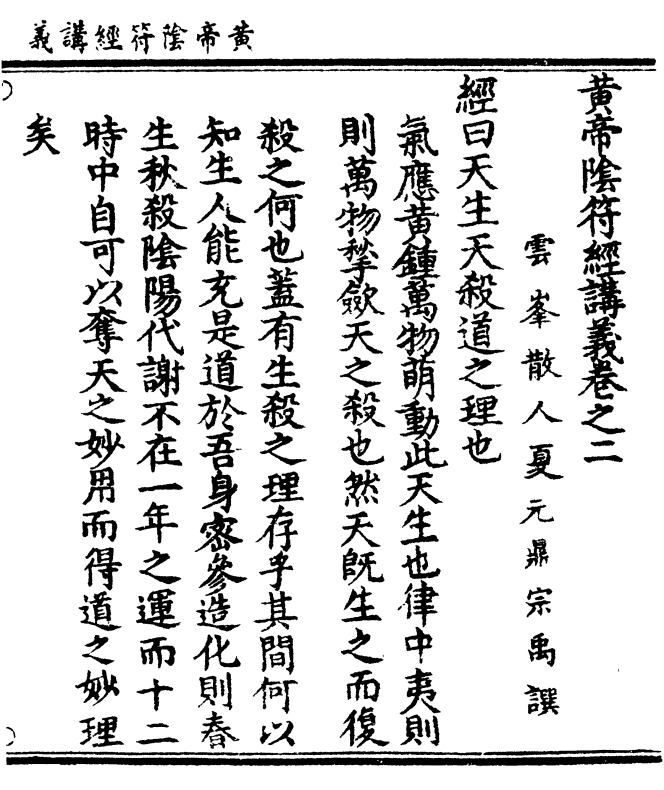 黄帝陰符經講義
黄帝陰符經講義卷之二
雲峯散人夏元鼎宗禹譔
經曰天生天殺道之理也
氣應黄鍾萬物萌動此天生也律中夷則
則萬物揫歛天之殺也然天旣生之而復
殺之何也蓋有生殺之理存乎其間何以
知生人能充是道於吾身密參造化則春
生秋殺陰陽代謝不在一年之運而十二
時中自可以奪天之妙用而得道之妙理
矣